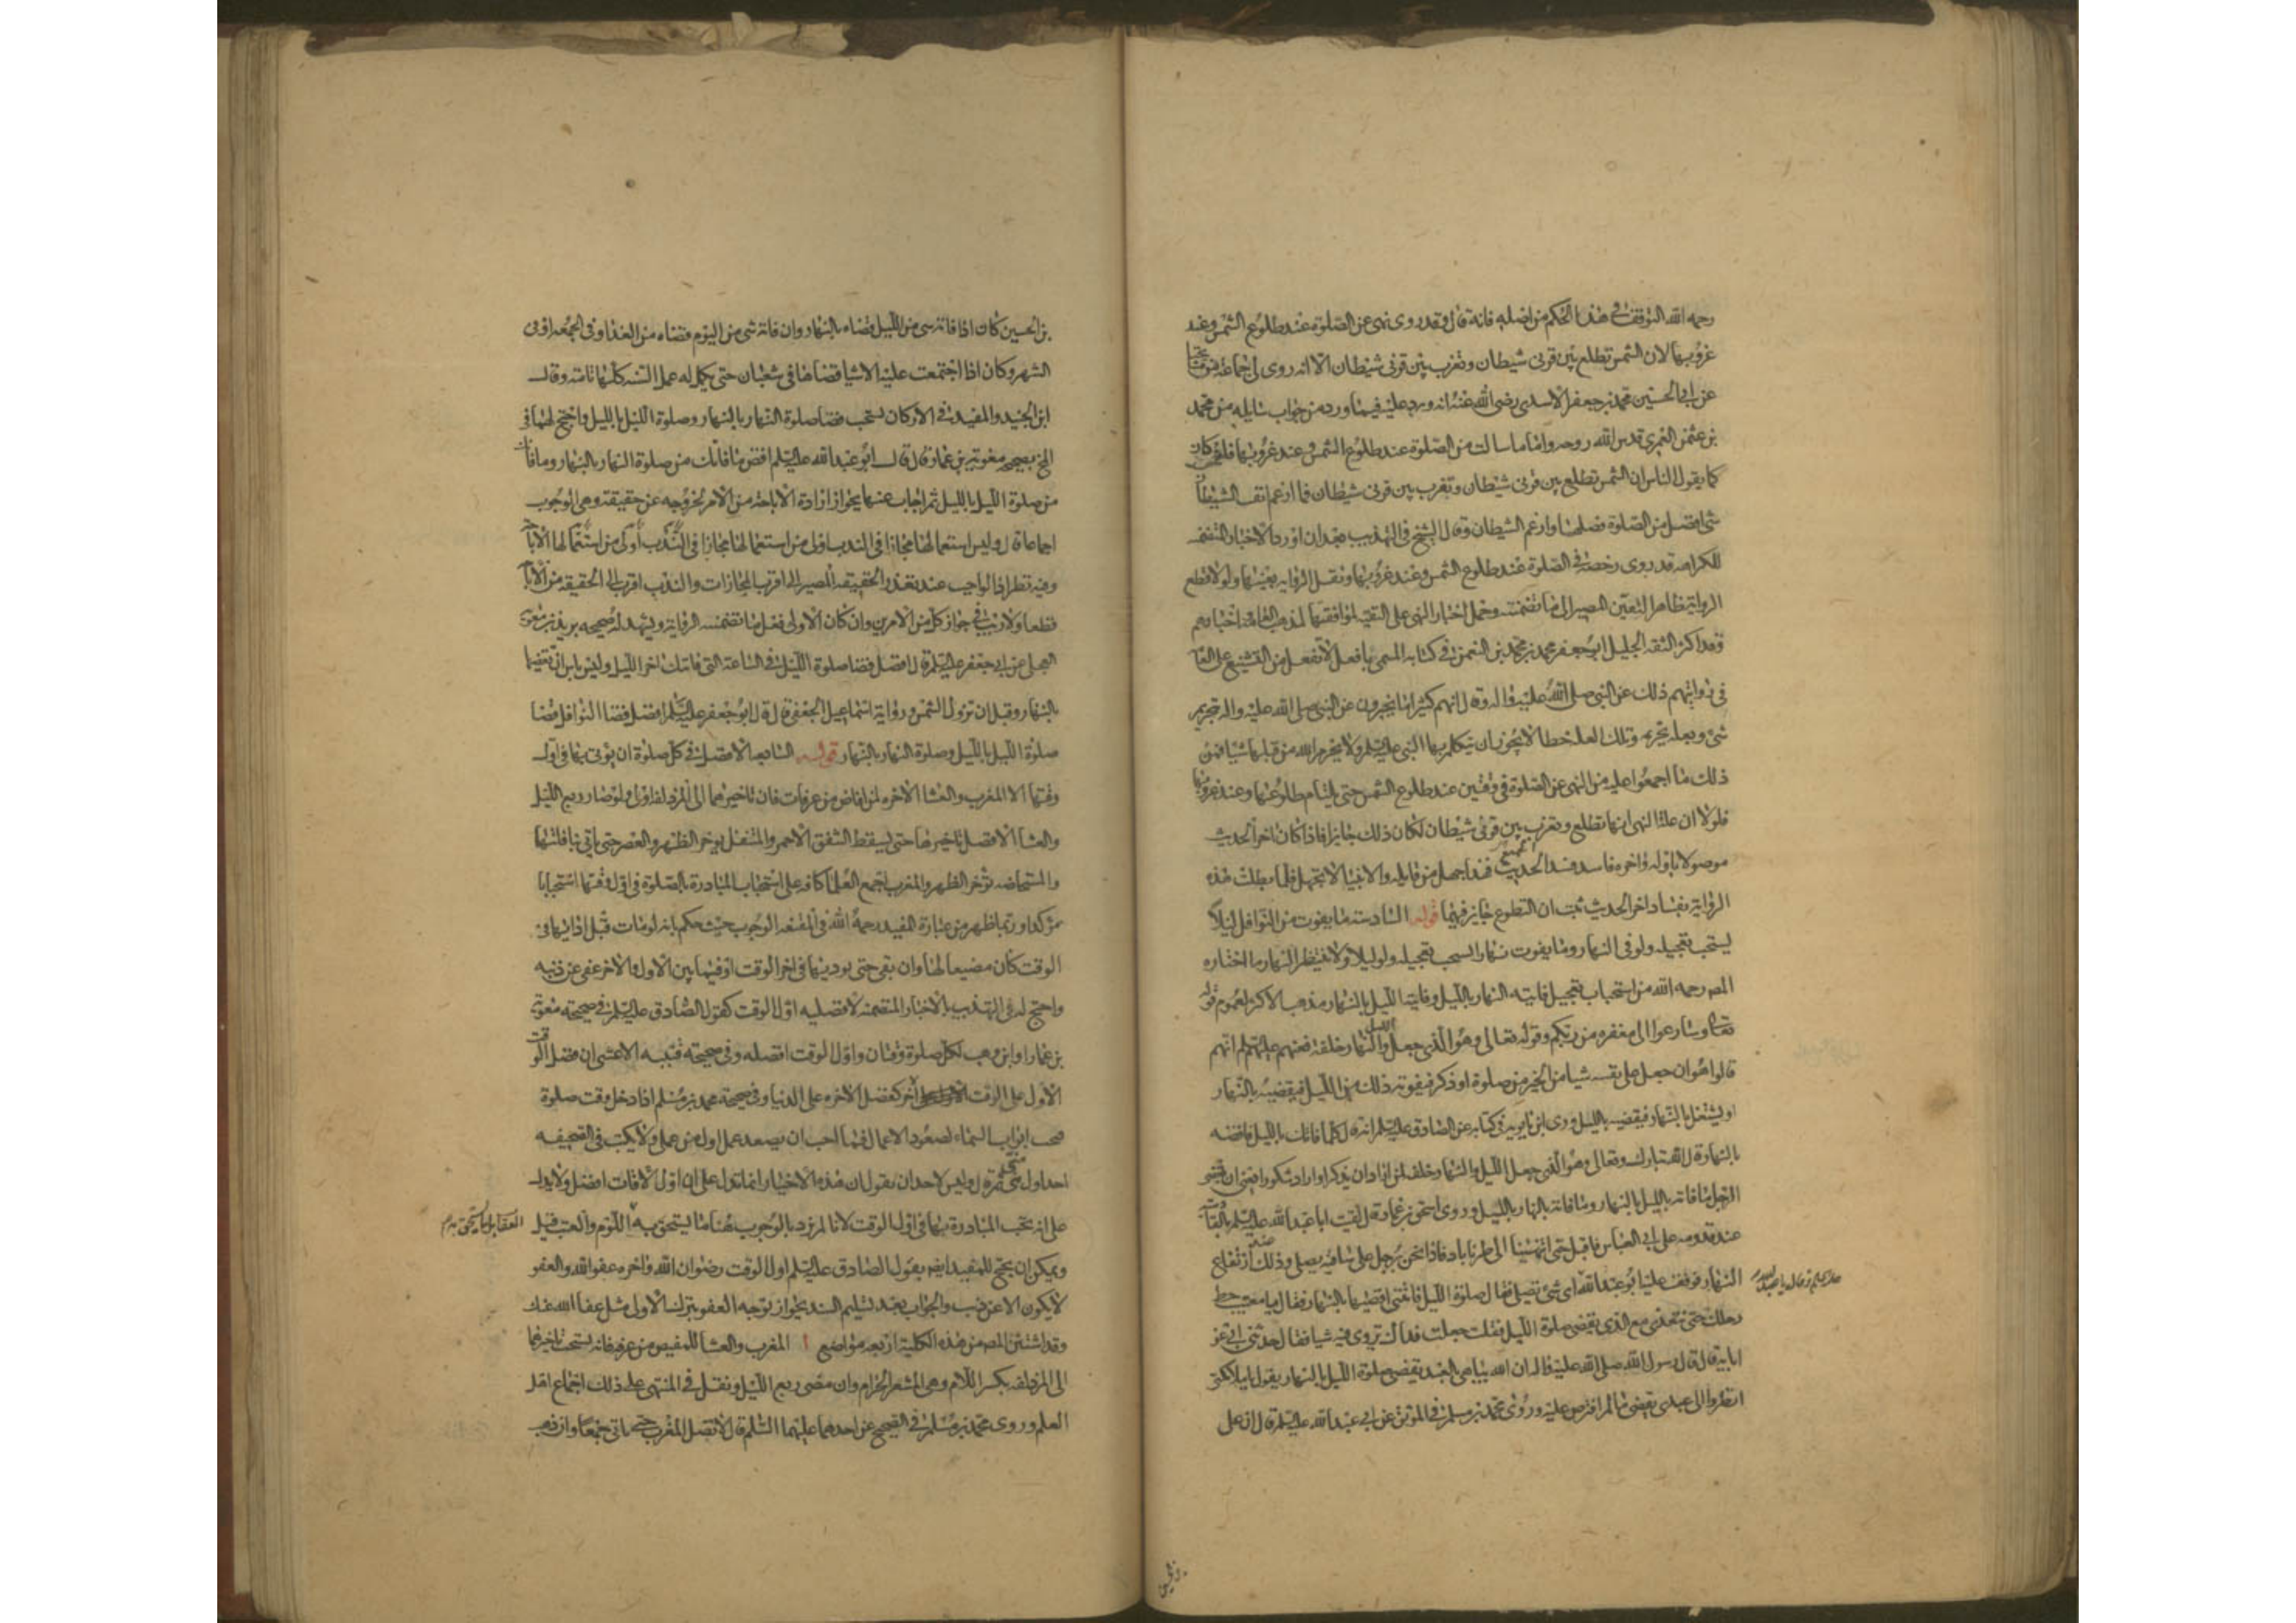 رحمه الله التوقف في هذا الحكم من اصله فانه قال وقد روى نهى عن الصلوة عند طلوع الشمس وعند
غروبها لان الشمس تطلع بين قرنى شيطان وتغرب بين قرنى شيطان الا انه روى لى جماعة من مشايخنا
عن ابى الحسين محمد بن جعفر الاسدى رضى الله عنه انه ورد عليه فيما ورد من جواب مسايله من محمد
بن عثمن العمرى قدس الله روحه واما ما سالت من الصلوة عند طلوع الشمس وعند غروبها فلئن كان
كما يقول الناس ان الشمس تطلع بين قرنى شيطان وتغرب بين قرنى شيطان فما ارغم انف الشيطان
شى افضل من الصلوة فصلها وارغم الشيطان وقال الشيخ فى التهذيب بعد ان اورد الاخبار المتضمنه
للكراهه قد روى رخصة فى الصلوة عند طلوع الشمس وعند غروبها ونقل الرواية بعينها ولولا قطع
الرواية ظاهرا لتعين المصير الى ما تضمنته وحمل اخبار النهى على التقيه لموافقتها لمذهب العامة واخبارهم
وقد اكثر الثقه الجليل ابو جعفر محمد بن محمد بن النعمن فى كتابه المسمى بافعل لا تفعل من التشنيع على العامة
فى روايتهم ذلك عن النبى صلى الله عليه واله وقال انهم كثيرا ما يخبرون عن النبى صلى الله عليه واله بتحريم
شئ وبعلة تحريمه وتلك العلة خطا لا يجوز ان يتكلم بها النبى عليه السلم ولا يحرم الله من قبلها شيا فمن
ذلك ما اجمعوا عليه من النهى عن الصلوة فى وقتين عند طلوع الشمس حتى يلتئام طلوعها وعند غروبها
فلولا ان علة النهى انها تطلع وتغرب بين قرنى شيطان لكان ذلك جايزا فاذا كان اخر الحديث
موصولا باوله واخره فاسد فسد الجميع وهذا جهل من قايله والانبيا لا تجهل فلما بطلت هذه
الرواية بفساد اخر الحديث ثبت ان التطوع جايز فيهما قوله السادسة ما يفوت من النوافل ليلا
يستحب تعجيله ولو فى النهار وما يفوت نهارا يستحب تعجيله ولو ليلا ولا ينتظر النهار ما اختاره
المصر رحمه الله من استحباب تعجيل فايته النهار بالليل وفايتة الليل بالنهار مذهب الاكثر لعموم قوله
تعالى وسارعوا الى مغفره من ربكم وقوله تعالى وهو الذى جعل الليل والنهار خلفة فعنهم عليهم السلم انهم
قالوا هو ان جعل على نفسه شيا من الخير من صلوة او ذكر فيفوته ذلك من الليل فيقضيه بالنهار
او يشتغل بالنهار فيقضيه بالليل وروى ابن بابويه فى كتابه عن الصادق عليه السلم انه قال كلما فاتك بالليل فاقضه
بالنهار قال الله تبارك وتعالى وهو الذى جعل الليل والنهار خلفه لمن اراد ان يذكر او اراد شكورا يعنى ان يقضى
الرجل ما فاته بالليل بالنهار وما فاته بالنهار بالليل وروى اسحق بن عمار قال لقيت ابا عبد الله عليه السلم بالقادسية
عند قدومه على ابى العباس فاقبل حتى انتهينا الى طرناباد فاذا نحن برجل على ساقيه يصلى وذلك عند ارتفاع
النهار فوقف عليه ابو عبد الله اى شئ تصلى فقال صلوة الليل فاتتنى اقضيها بالنهار فقال يا معتب حط
رحلك حتى نتغدى مع الذى يقضى صلوة الليل فقلت جعلت فداك تروى فيه شيا فقال حدثنى ابى عن
ابايه قال قال رسول الله صلى الله عليه واله ان الله يباهى بالعبد يقضى صلوة الليل بالنهار يقول يا ملائكتى
انظروا الى عبدى يقضى ما لم افترض عليه وروى محمد بن مسلم فى الموثق عن ابى عبد الله عليه السلم قال ان على
بن الحسين كان اذا فاته شى من الليل قضاه بالنهار وان فاته شى من اليوم قضاه من الغد او فى الجمعه او فى
الشهر وكان اذا اجتمعت عليه الاشيا قضاها فى شعبان حتى يكمل له عمل السنه كلها تامة وقال
ابن الجنيد والمفيد فى الاركان يستحب قضا صلوة النهار بالنهار وصلوة الليل بالليل واحتج لهما فى
المخ بصحيحه معويه بن عمار قال قال ابو عبد الله عليه السلم اقض ما فاتك من صلوة النهار بالنهار وما فاتك
من صلوة الليل بالليل ثم اجاب عنها بجواز ارادة الاباحة من الامر لخروجه عن حقيقته وهى الوجوب
اجماعا قال وليس استعمالها مجازا فى الندب اولى من استعمالها مجازا فى الاباحة
وفيه نظر اذ الواجب عند تعذر الحقيقه المصير الى اقرب المجازات والندب اقرب الى الحقيقه من الاباحة
قطعا ولا ريب فى جواز كل من الامرين وان كان الاولى فعل ما تضمنته الرواية ويشهد له صحيحه بريد بن معوية
العجلى عن ابى جعفر عليه السلم قال افضل قضا صلوة الليل فى الساعة التى فاتتك اخر الليل وليس باس ان تقضيها
بالنهار وقبل ان تزول الشمس ورواية اسماعيل الجعفى قال قال ابو جعفر عليه السلم افضل قضا النوافل قضا
صلوة الليل بالليل وصلوة النهار بالنهار قوله السابعه الافضل فى كل صلوة ان يوتى بها فى اول
وقتها الا المغرب والعشا الاخره لمن افاض من عرفات فان تاخيرهما الى المزدلفة اولى ولو صار ربع الليل
والعشا الافضل تاخيرها حتى يسقط الشفق الاحمر والمتنفل يوخر الظهر والعصر حتى ياتى بنافلتها
والمستحاضه توخر الظهر والمغرب اجمع العلما كافه على استحباب المبادرة بالصلوة فى اول وقتها استحبابا
موكدا وربما ظهر من عبارة المفيد رحمه الله فى المقنعه الوجوب حيث حكم بانه لو مات قبل ادائها فى
الوقت كان مضيعا لها وان بقى حتى يوديها فى اخر الوقت او فيما بين الاول والاخر عفى عن ذنبه
واحتج له فى التهذيب بالاخبار المتضمنه لافضليه اول الوقت كقول الصادق عليه السلم فى صحيحه معوية
بن عمار او ابن وهب لكل صلوة وقتان واول الوقت افضله وفى صحيحته قتيبه الاعشى ان فضل الوقت
الاول على الاخر كفضل الاخره على الدنيا وفى صحيحة محمد بن مسلم اذا دخل وقت صلوة
فتحت ابواب السماء لصعود الاعمال فما احب ان يصعد عمل اول من عملى ولا يكتب فى الصحيفه
احد اول منى ثم قال وليس لاحد ان يقول ان هذه الاخبار انما تدل على ان اول الاوقات افضل ولا يدل
على انه يجب المبادرة بها فى اول الوقت لانا لم نرد بالوجوب هنا ما يستحق به اللوم والعتب قبل
ويمكن ان يحتج للمفيد ايضا بقول الصادق عليه السلم اول الوقت رضوان الله واخره عفو الله والعفو
لا يكون الا عن ذنب والجواب بعد تسليم السند بجواز توجه العفو بترك الاولى مثل عفا الله عنك
وقد استثنى المصر من هذه الكلية اربعه مواضع ا المغرب والعشا للمفيض من عرفه فانه يستحب تاخيرهما
الى المزدلفه بكسر اللام وهى المشعر الحرام وان مضى ربع الليل ونقل فى المنتهى على ذلك اجماع اهل
العلم وروى محمد بن مسلم فى الصحيح عن احدهما عليهما السلم قال لا تصل المغرب حتى تاتى جمعا وان ذهب